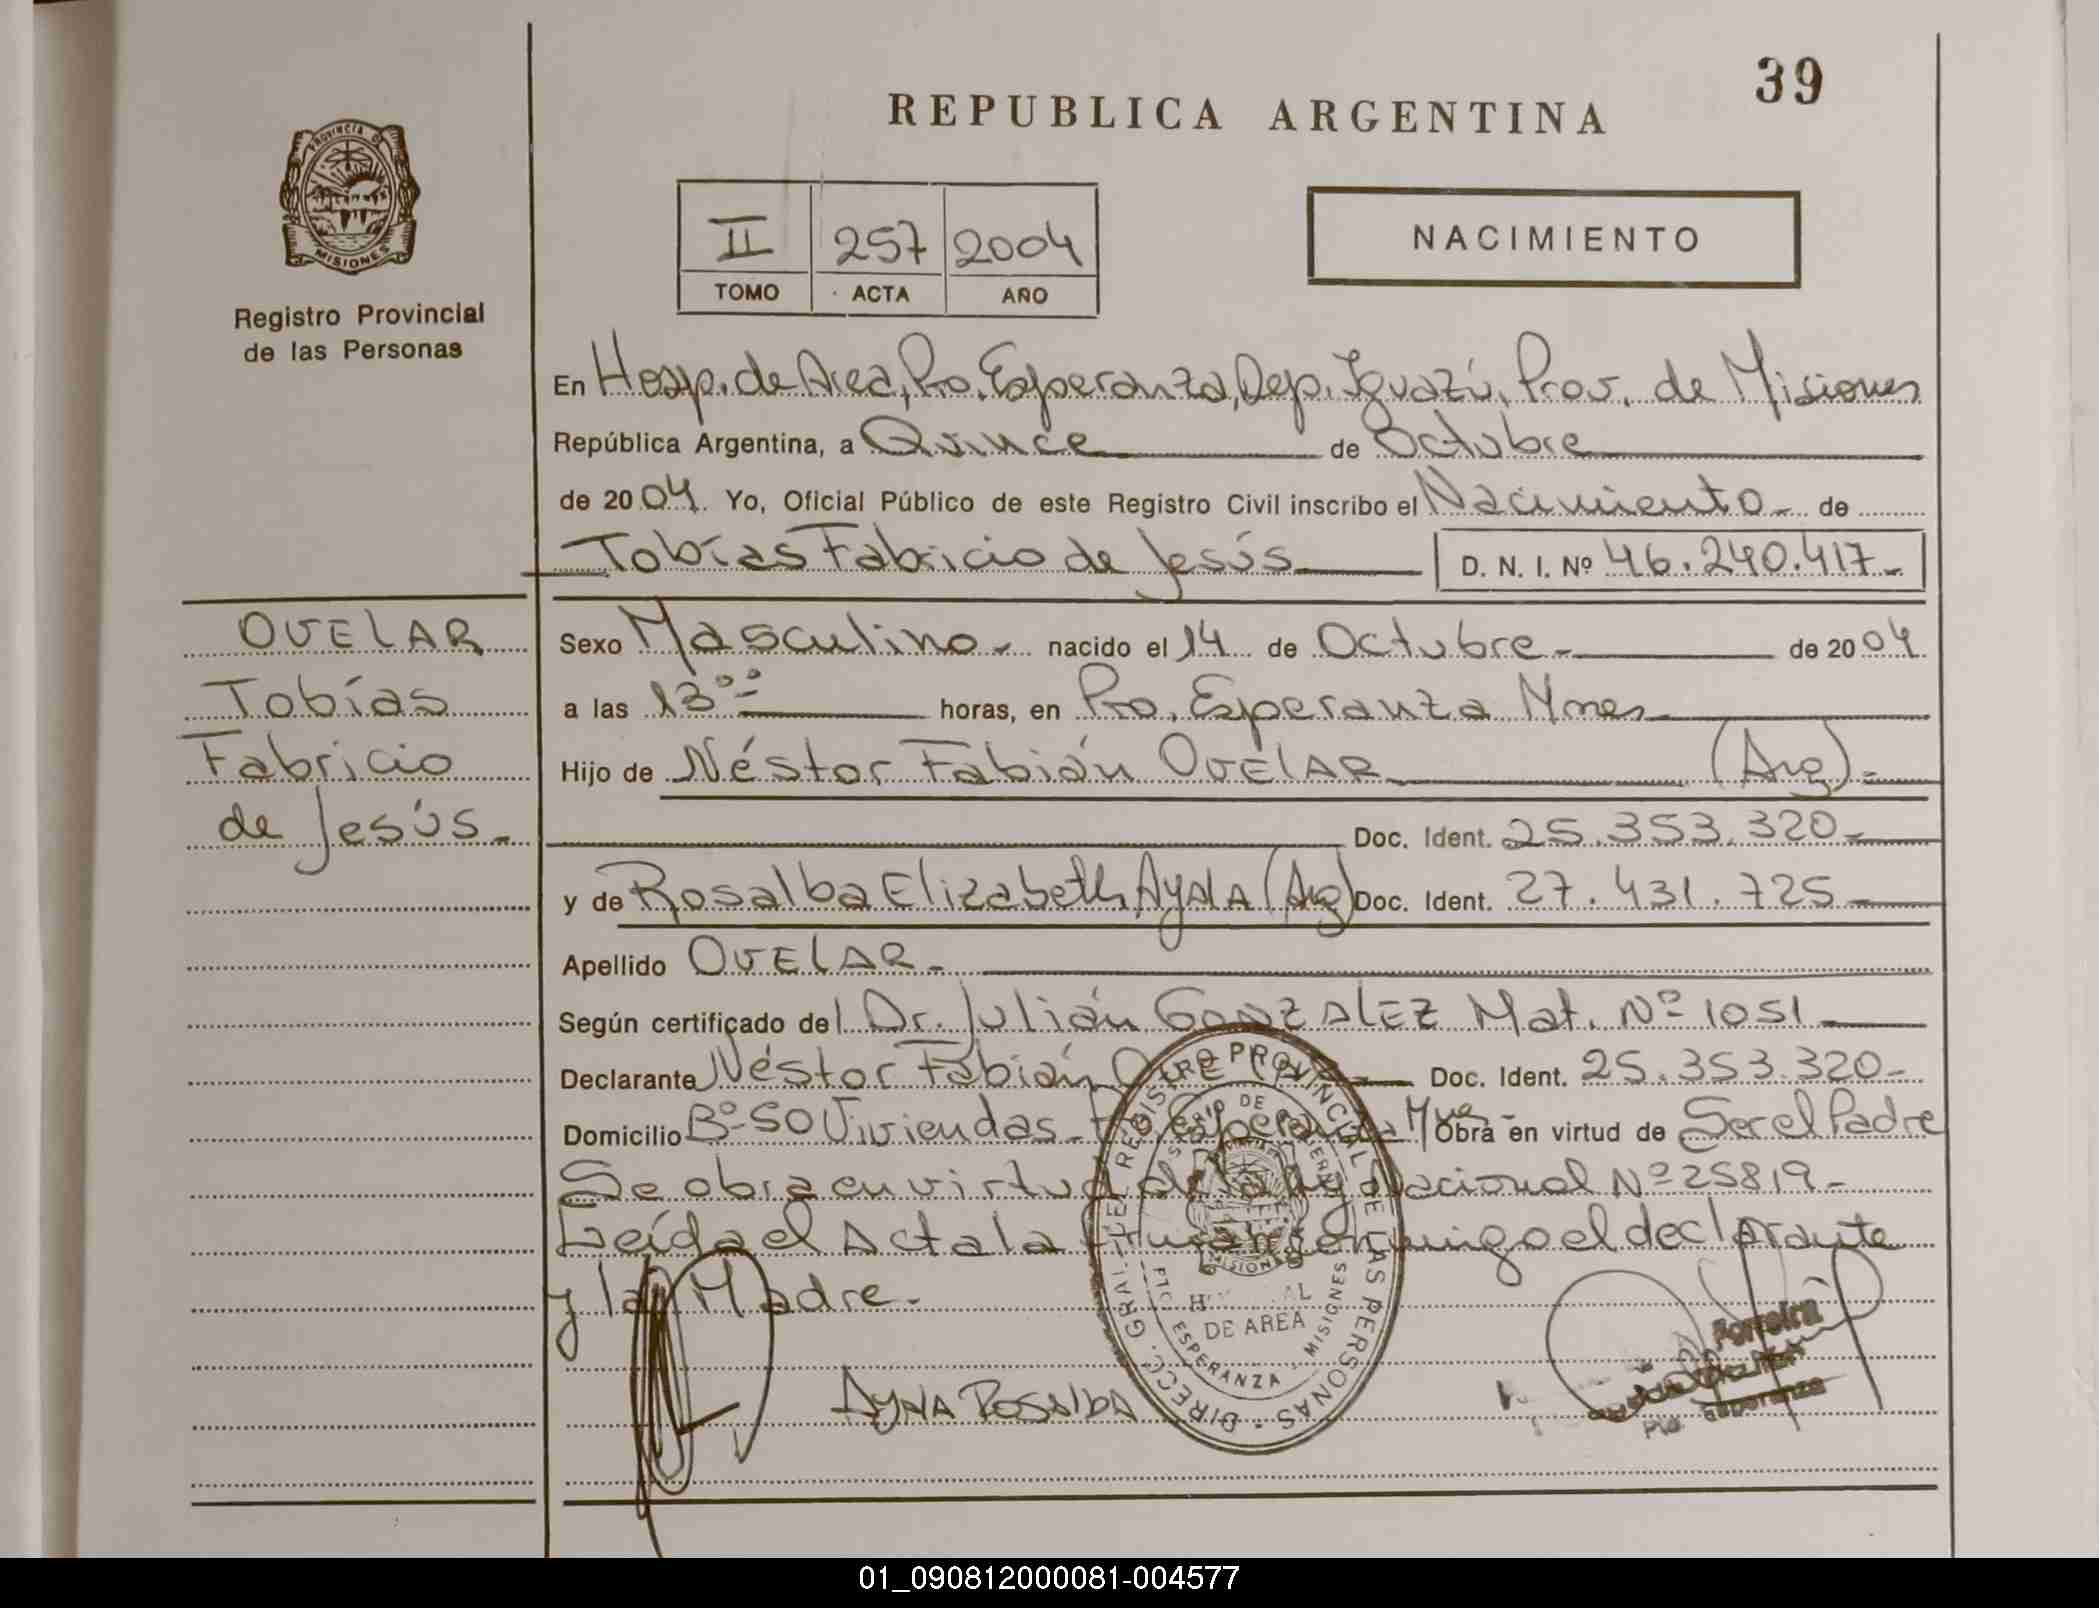 39
REPUBLICA ARGENTINA
PROVINCIA DE
MISIONES
Registro Provincial
de las Personas
II 257 2004
TOMO ACTA AÑO
NACIMIENTO
En Hosp. de Area, Pto. Esperanza, Dep. Iguazú, Prov. de Misiones
República Argentina, a Quince de Octubre
de 2004. Yo, Oficial Público de este Registro Civil inscribo el Nacimiento de
Tobías Fabricio de Jesús D. N. I. Nº 46.240.417
OVELAR
Tobías
Fabricio
de Jesús
Sexo Masculino nacido el 14 de Octubre de 2004
a las 13°° horas, en Pto. Esperanza Mnes
Hijo de Néstor Fabián OVELAR (Arg)
Doc. Ident. 25.353.320
y de Rosalba Elizabeth AyAlA (Arg) Doc. Ident. 27.431.725
Apellido OVELAR
Según certificado del Dr. Julián GONZALEZ Mat. Nº 1051
Declarante Néstor Fabián Doc. Ident. 25.353.320
Domicilio Bº 50 Viviendas. Pto. Esperanza Mnes Obra en virtud de Ser el Padre
Se obra en virtud de la Ley Nacional Nº 25819
Leída el Acta la firman conmigo el declarante
y la Madre.
AyAlA ROSAlBA
DIRECC. GRAL. DE REGISTRO PROVINCIAL DE LAS PERSONAS
MISIONES
DE AREA
PTO. ESPERANZA - MISIONES
Ferreira
Pto. Esperanza
01_090812000081-004577